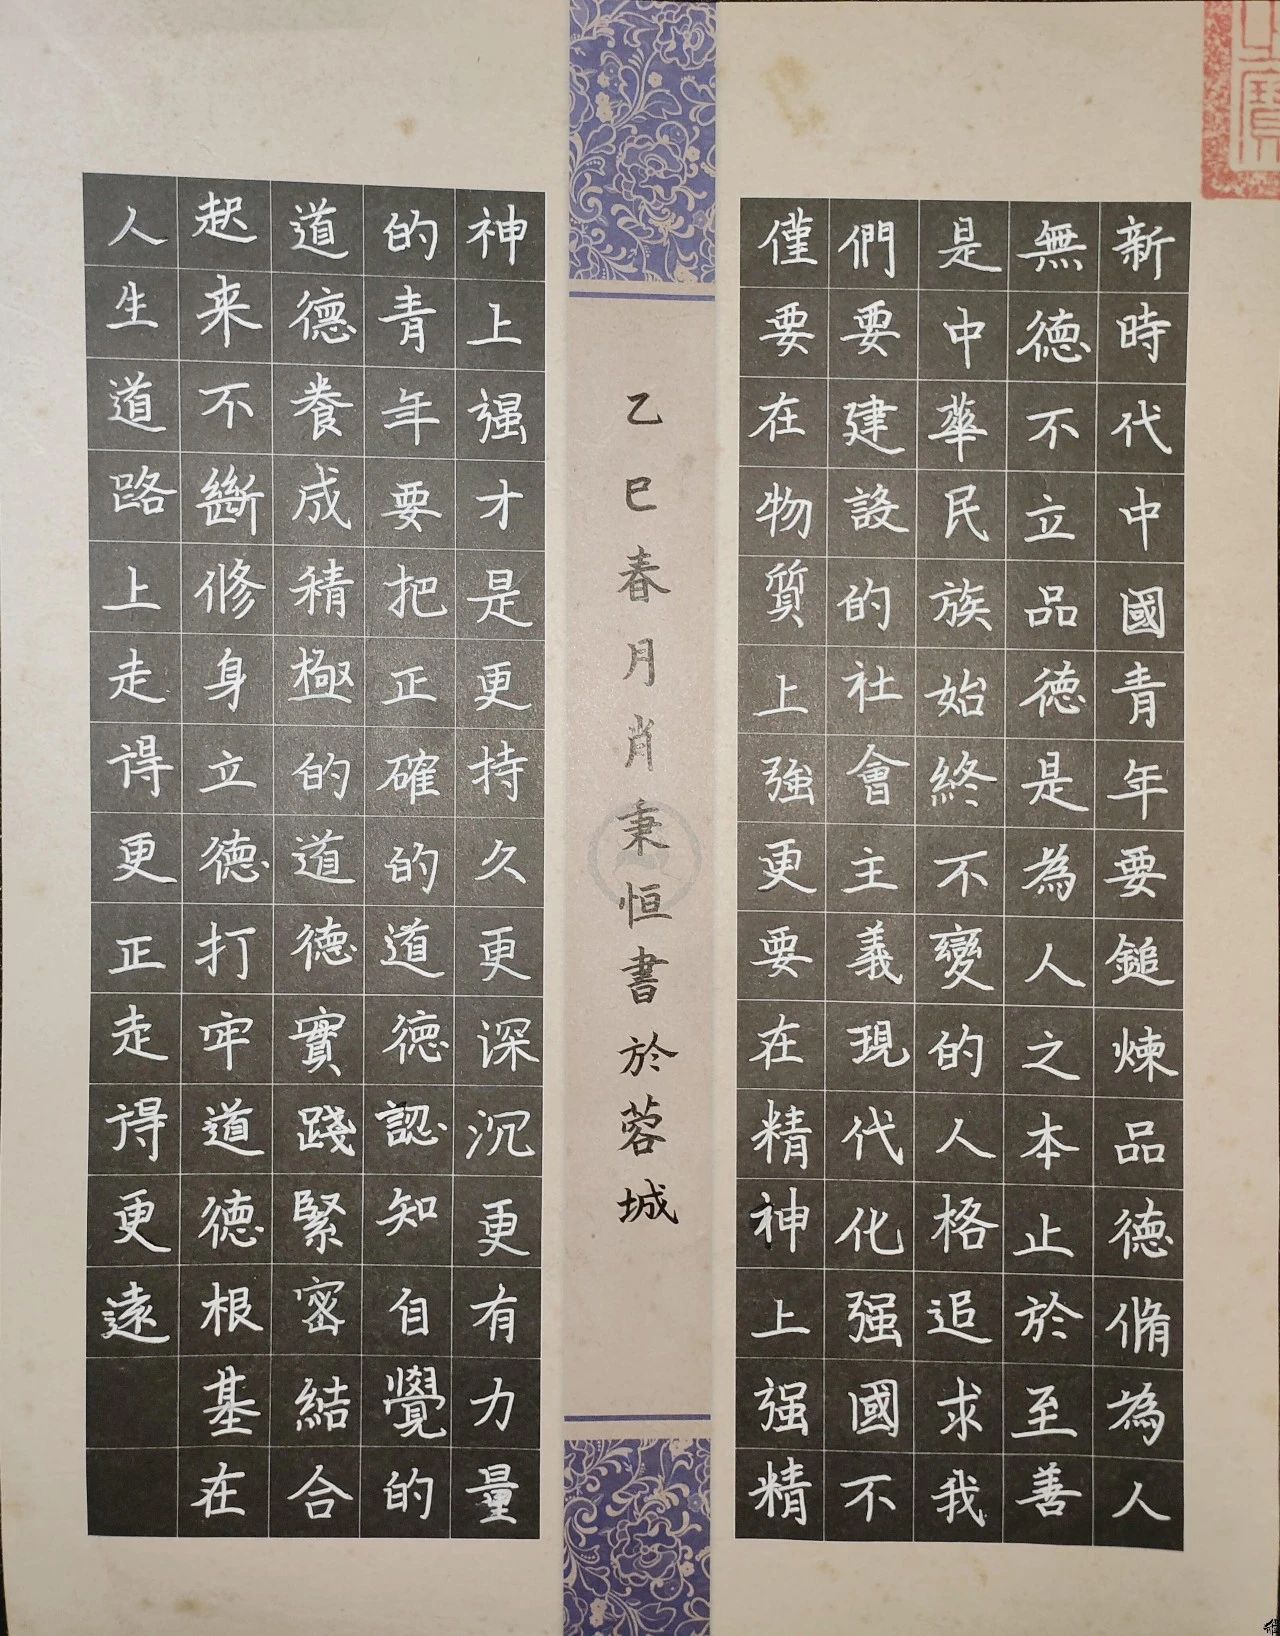 新時代中國青年要鎚煉品德脩為人
無德不立品德是為人之本止於至善
是中華民族始終不變的人格追求我
們要建設的社會主義現代化强國不
僅要在物質上強更要在精神上强精
神上强才是更持久更深沉更有力量
的青年要把正確的道德認知自覺的
道德養成積極的道德實踐緊密結合
起来不斷修身立德打牢道德根基在
人生道路上走得更正走得更遠
乙巳春月肖秉恒書於蓉城